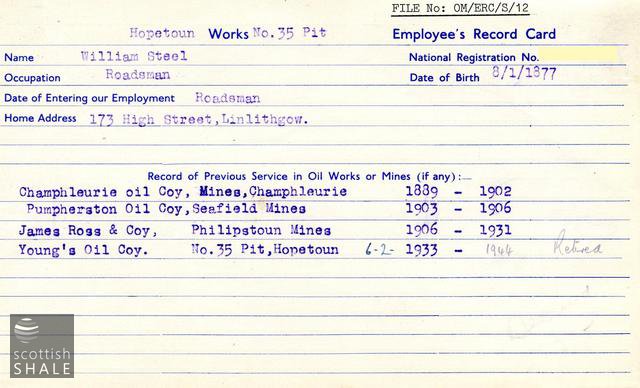 FILE No: OM/ERC/S/12
Hopetoun Works No.35 Pit Employee's Record Card
Name William Steel National Registration No.
Occupation Roadsman Date of Birth 8/1/1877
Date of Entering our Employment Roadsman
Home Address 173 High Street,Linlithgow.
Record of Previous Service in Oil Works or Mines (if any):—
Champhleurie oil Coy, Mines,Champhleurie 1889 - 1902
Pumpherston Oil Coy,Seafield Mines 1903 - 1906
James Ross & Coy, Philipstoun Mines 1906 - 1931
Young's Oil Coy. No.35 Pit,Hopetoun 6-2- 1933 - 1944 Retired
scottish
SHALE